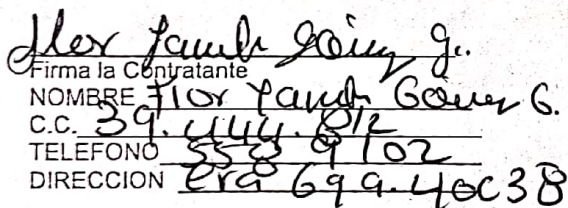 Flor Yaneth Gómez G.
Firma la Contratante
NOMBRE Flor Yaneth Gómez G.
C.C. 39.444.812
TELEFONO 553 9102
DIRECCION Cra 69 9.40C38